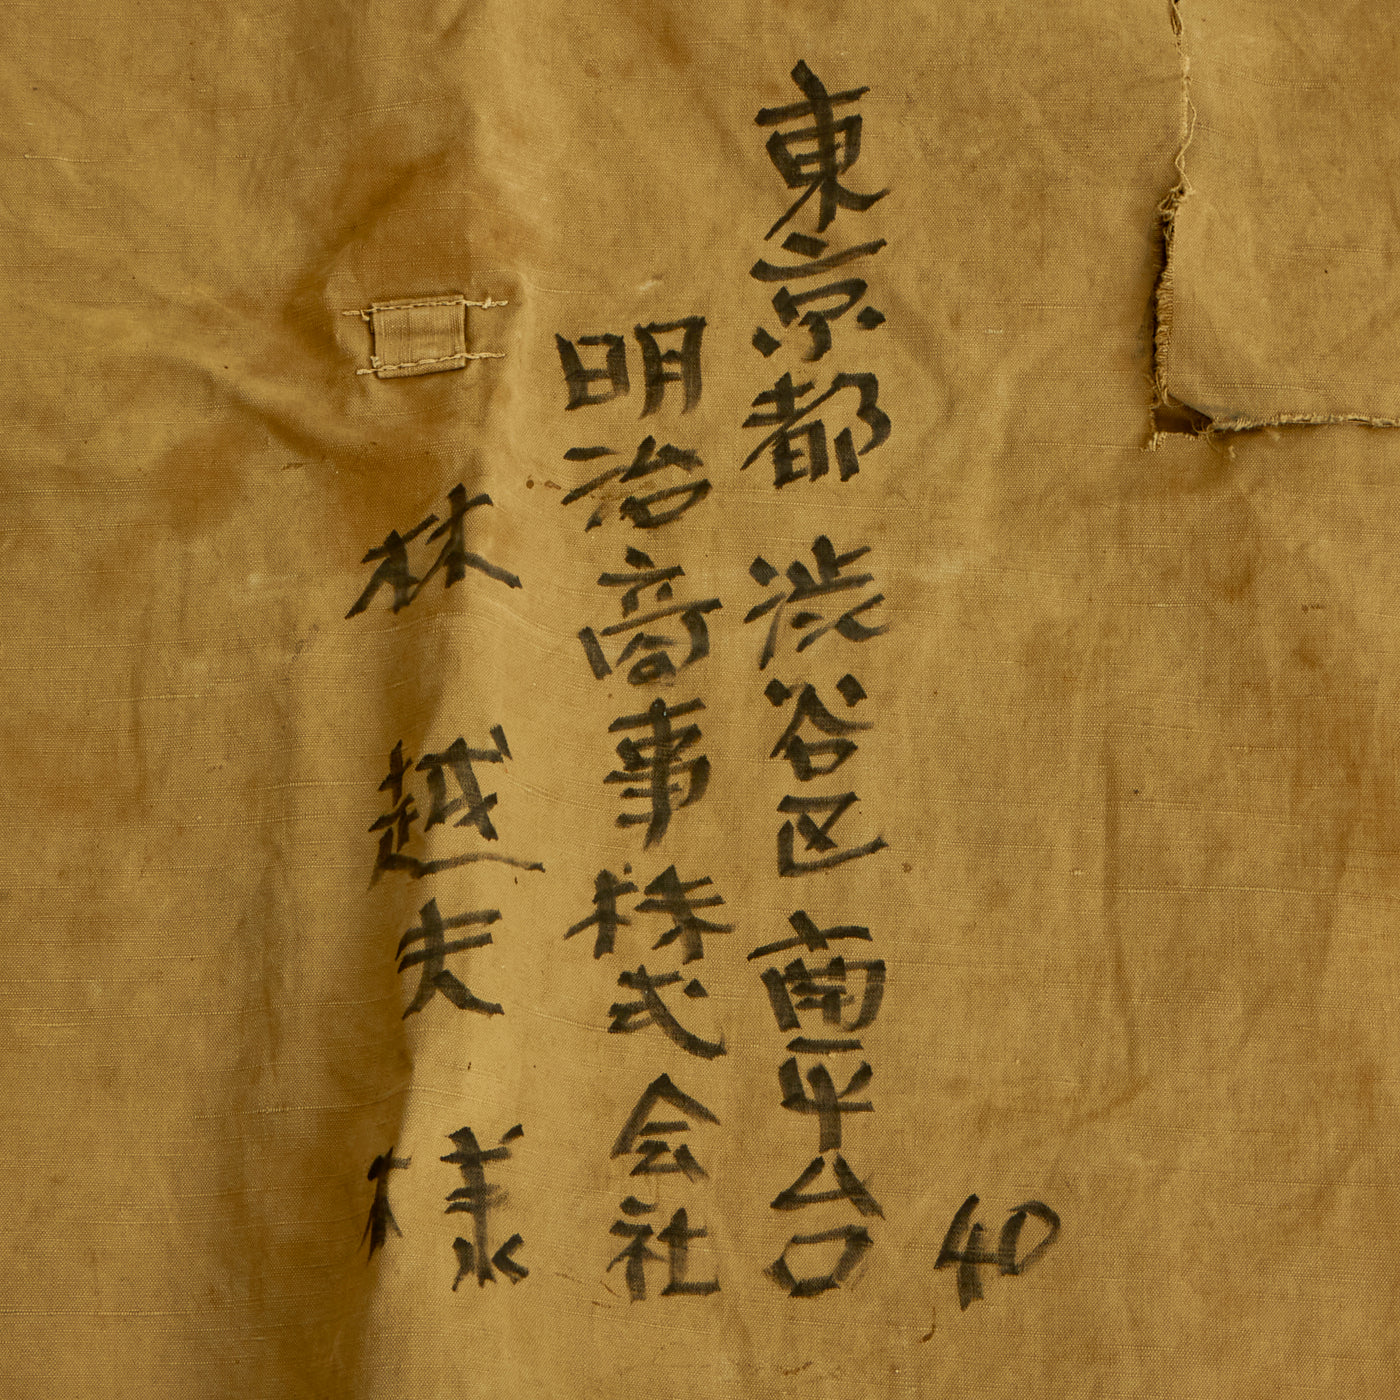 40
東京都 渋谷区 南平台
明治商事株式会社
林 越夫 様